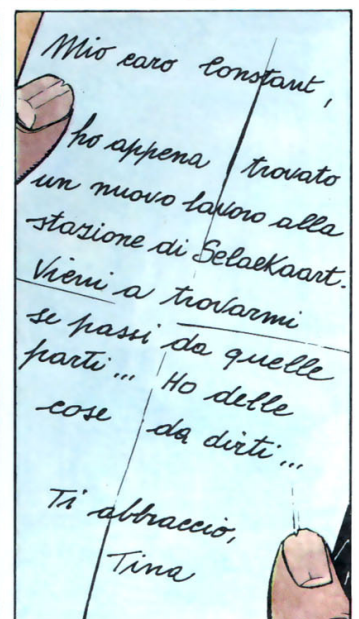 Mio caro Constant,
ho appena trovato
un nuovo lavoro alla
stazione di SelaeKaart.
Vieni a trovarmi
se passi da quelle
parti... Ho delle
cose da dirti...
Ti abbraccio,
Tina